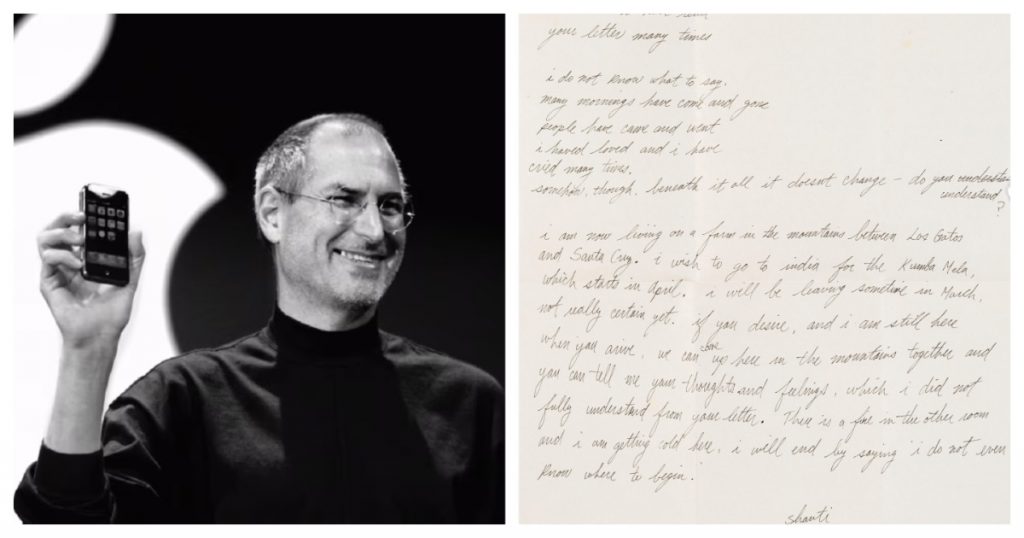 your letter many times
i do not know what to say.
many mornings have come and gone
people have came and went
i haved loved and i have
cried many times.
somehow, though, beneath it all it doesnt change – do you understan
understand
?
i am now living on a farm in the mountains between Los Gatos
and Santa Cruz. i wish to go to india for the Kumba Mela,
which starts in April. i will be leaving sometime in March,
not really certain yet. if you desire, and i am still here
when you arive, we can come up here in the mountains together and
you can tell me your thoughts and feelings, which i did not
fully understand from your letter. There is a fire in the other room
and i am getting cold here. i will end by saying i do not even
know where to begin.
shanti